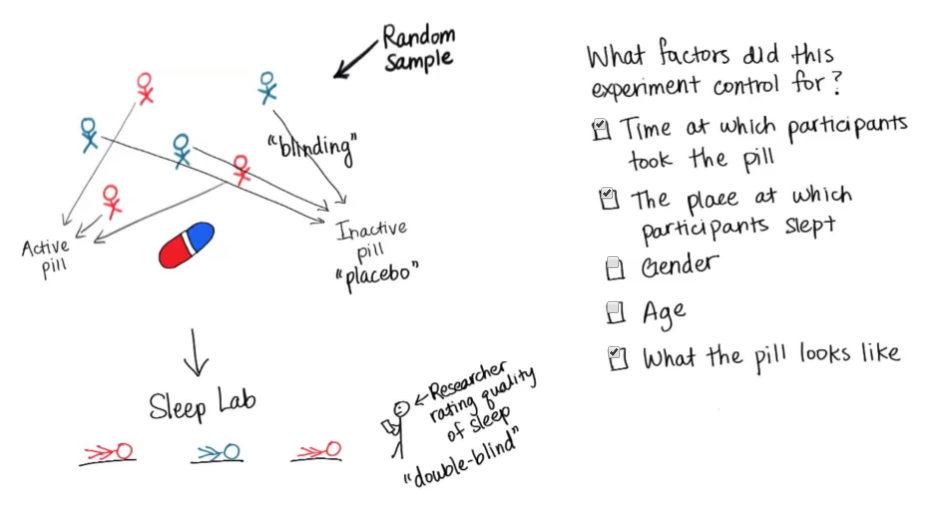 Random
sample
"blinding"
Active
pill
Inactive
pill
"placebo"
Sleep Lab
Researcher
rating quality
of sleep
"double-blind"
What factors did this
experiment control for?
Time at which participants
took the pill
The place at which
participants slept
Gender
Age
What the pill looks like